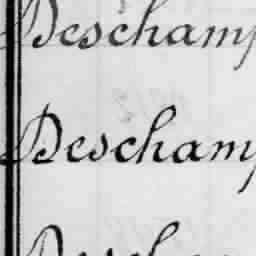 Descham
Descham